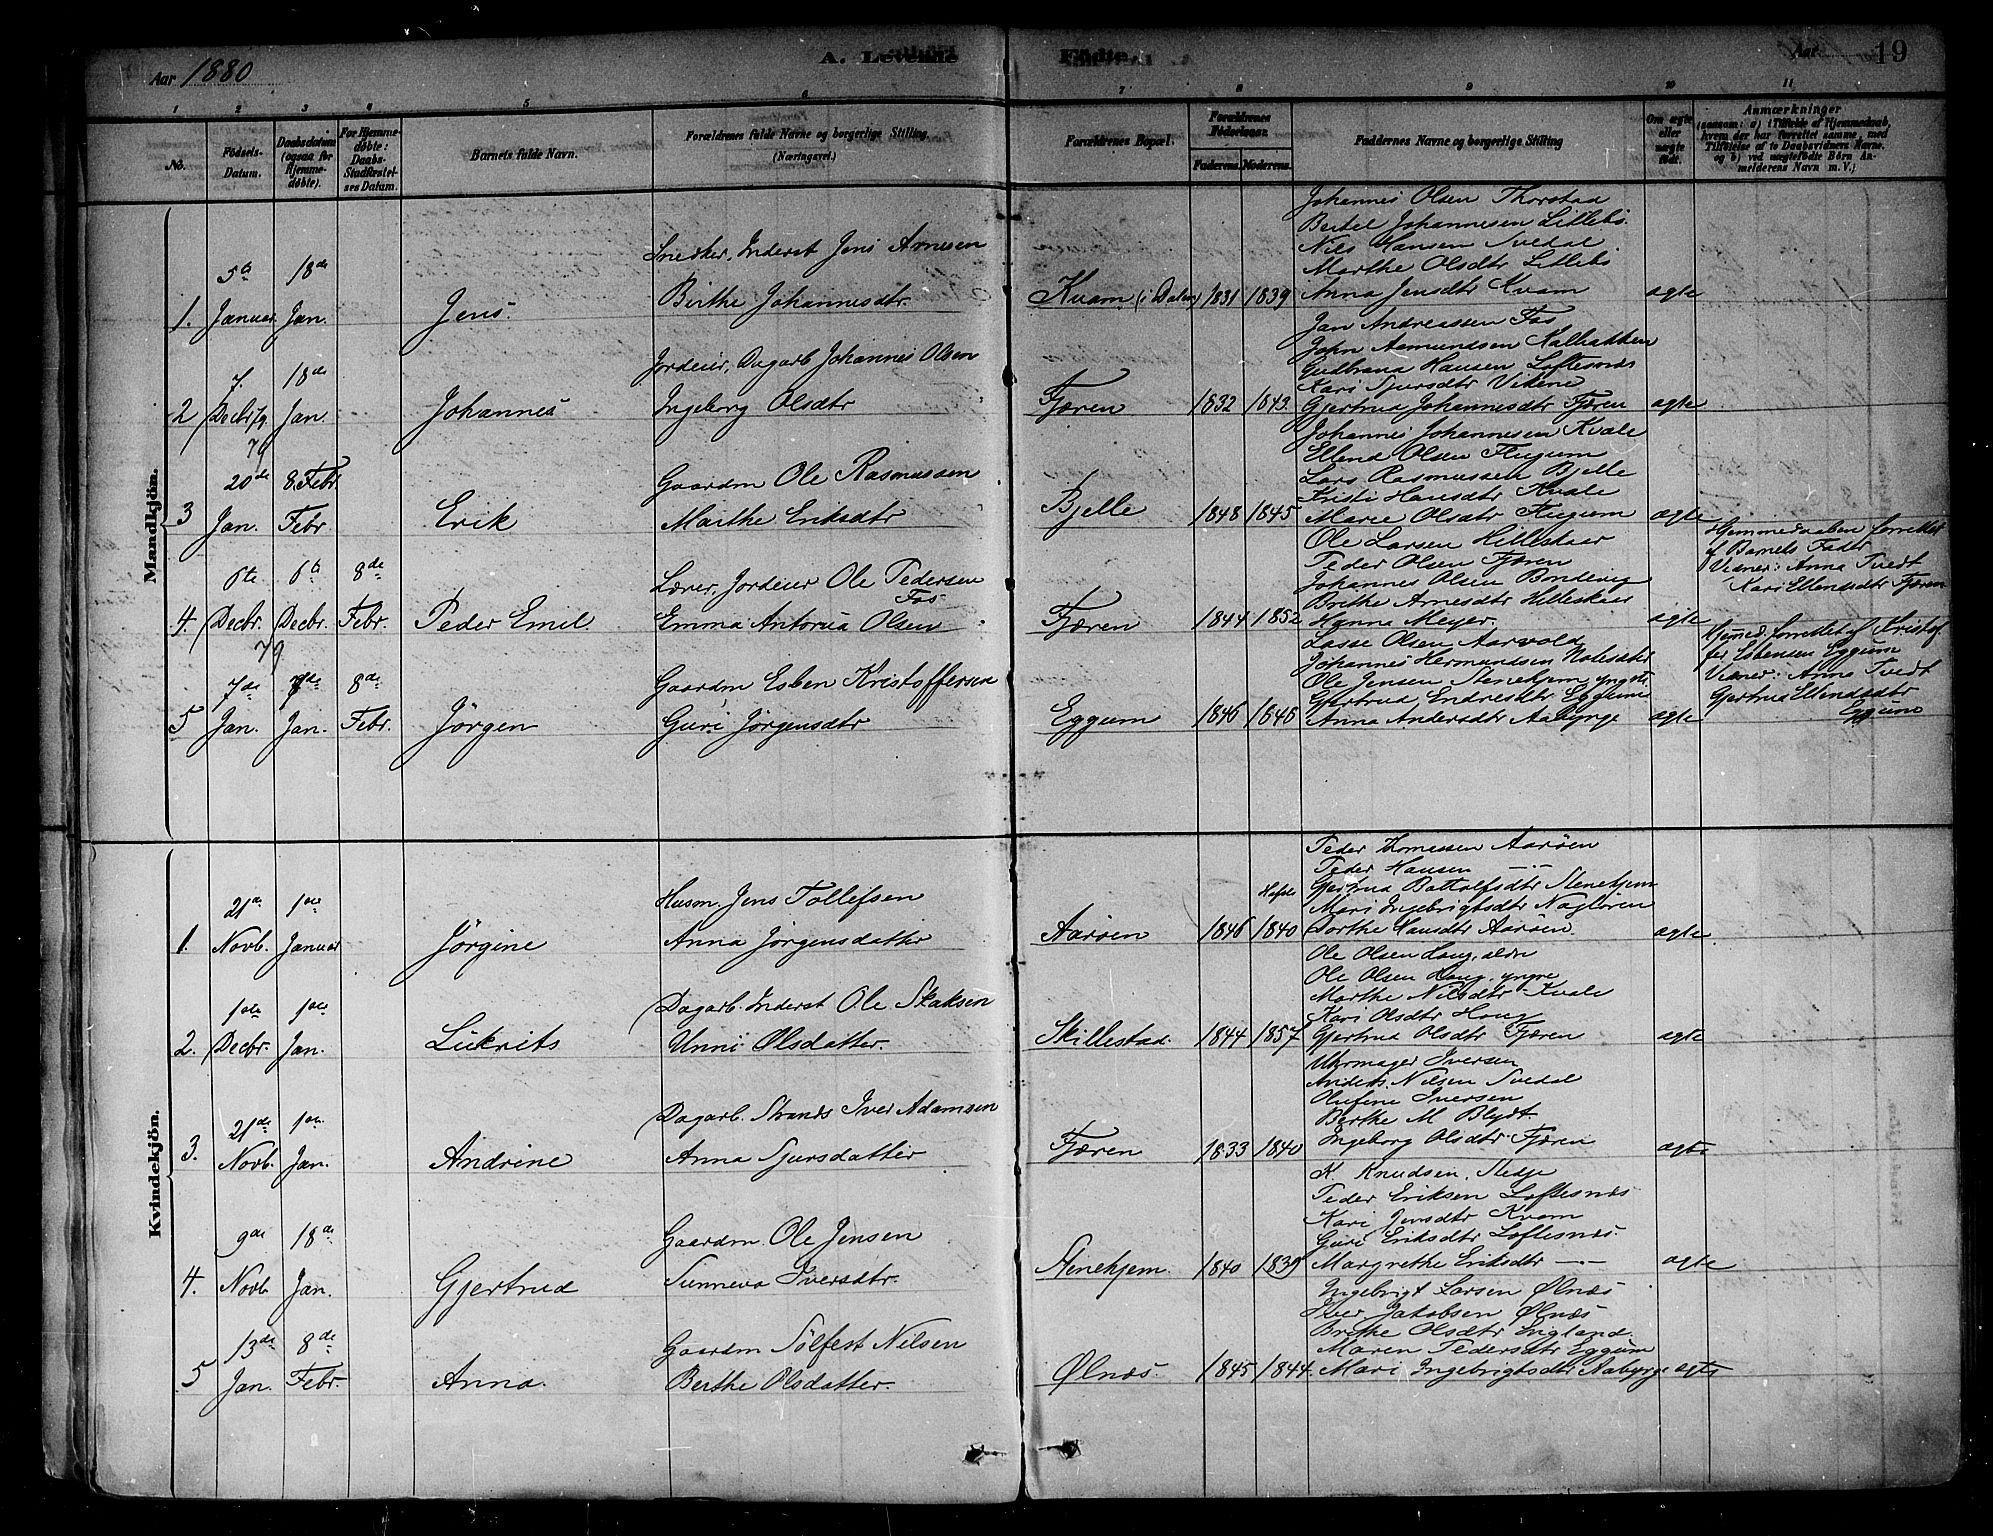 Aar 1880
A. Levende
Fødte.
Aar
19
1 2 3 4 5 6 7 8 9 10 11
No.
Födsels-Datum.
Daabsdatum (ogsaa for Hjemme-døbte).
For Hjemme-døbte: Daabs-Stadfæstel-ses Datum.
Barnets fulde Navn.
Forældrenes fulde Navne og borgerlige Stilling. (Næringsvei.)
Forældrenes Bopæl.
Forældrenes Fødselsaar. Faderens. Moderens.
Faddernes Navne og borgerlige Stilling
Om ægte eller uægte født.
Anmærkninger (saasom: a) i Tilfælde af Hjemmedaab, hvem der har forrettet samme, med Tilføielse af to Daabsvidners Navne, og b) ved uægtefødte Börn An-melderens Navn m. V.)
Mandkjön.
Johannes Olsen Thorstad
Bertel Johannesen Litlebö
Nils Hansen Svedal
Marthe Olsdtr Litlebö
5te 18de Snedker, Inderst Jens Arnesen
1. Januar Jan. Jens. Birthe Johannesdtr. Kvam (i Dalen) 1831 1839 Anna Jensdtr Kvam ægte
Jan Andreassen Fos
John Aamundsen Kalbakken
Gudbrand Hansen Loftesnæs
Kari Sjursdtr Vikene
7. 18de Jordeier, Dagarb. Johannes Olsen
2 Decbr. 79 Jan. Johannes Ingeborg Olsdtr Fjæren 1832 1843. Gjertrud Johannesdtr Fjæren ægte
79
Johannes Johannesen Kvale
Ellend Olsen Flugum
Lars Rasmussen Bjelle
Kristi Hansdtr Kvale
20de 8. Febr Gaardm Ole Rasmussen
3 Jan. Febr Erik Marthe Eriksdtr Bjelle 1848 1845 Marie Olsdtr Flugum ægte
Ole Larsen Hilleskaar
Peder Olsen Fjæren
Johannes Olsen Bondevig
Brithe Arnesdtr Hilleskaar
6te 6te 8de Lærer, Jordeier Ole Pedersen Fos
4. Decbr. Decbr. Febr. Peder Emil. Emma Antonia Olsen Fjæren 1844 1852 Hanna Meyer. ægte
79
Hjemmedaaben forrettet
af Barnets Fader
Vidner: Anna Tvedt
Kari Ellendsdtr Fjæren
Lasse Olsen Aarvold
Johannes Hermundsen Notesæter
Ole Jensen Stenehjem, yngre
Gjertrud Endresdtr Eggum
7de 7de 8de Gaardm Esben Kristoffersen
5 Jan. Jan. Febr. Jörgen Guri Jörgensdtr Eggum 1846 1848 Anna Andersdtr Aabynge ægte
Hjemmed. forrettet af Kristof-
fer Esbensen Eggum
Vidner: Anna Tvedt
Gjertrud Ellendsdtr
Eggum
Kvindekjön.
Peder Thomessen Aaröen
Peder Hansen —
Gjertrud Bottolfsdtr Stenehjem
Mari Ingebrigtsdtr Nagløren
21de 1ste Husm. Jens Tollefsen
1. Novb. Januar Jörgine Anna Jörgensdatter Aaröen 1846 1840 Dorthe Hansdtr Aaröen. ægte
Ole Olsen Haug, eldre
Ole Olsen Haug, yngre
Marthe Nilsdtr Kvale
Kari Olsdtr Haug
1ste 1ste Dagarb. Inderst Ole Skaksen
2. Decbr. Jan. Lukrits Unni Olsdatter. Skillestad. 1844 1857 Gjertrud Olsdtr Fjæren ægte
Uhrmager Iversen
Anders Nilsen Svedal
Olufine Iversen
Berthe M Blydt.
21de 1ste Dagarb. Strands Iver Adamsen
3. Novb. Jan. Andrine Anna Sjursdatter Fjæren 1833 1840 Ingeborg Olsdtr Fjæren ægte
K. Knudsen, Stedje
Peder Eriksen Loftesnæs
Kari Jensdtr Kvam
Guri Eriksdtr Loftesnæs.
9de 18de Gaardm. Ole Jensen
4. Novb. Jan. Gjertrud Sunneva Iversdtr. Stenehjem. 1840 1839 Margrethe Eriksdtr — ægte
Ingebrigt Larsen Ølnæs
Iver Jakobsen Ølnæs
Brithe Olsdtr England.
Maren Pedersdtr Eggum
13de 8de Gaardm Sölfest Nilsen
5 Jan. Febr. Anna. Berthe Olsdatter. Ølnæs. 1845 1844. Mari Ingebrigtsdtr Aabynge ægte